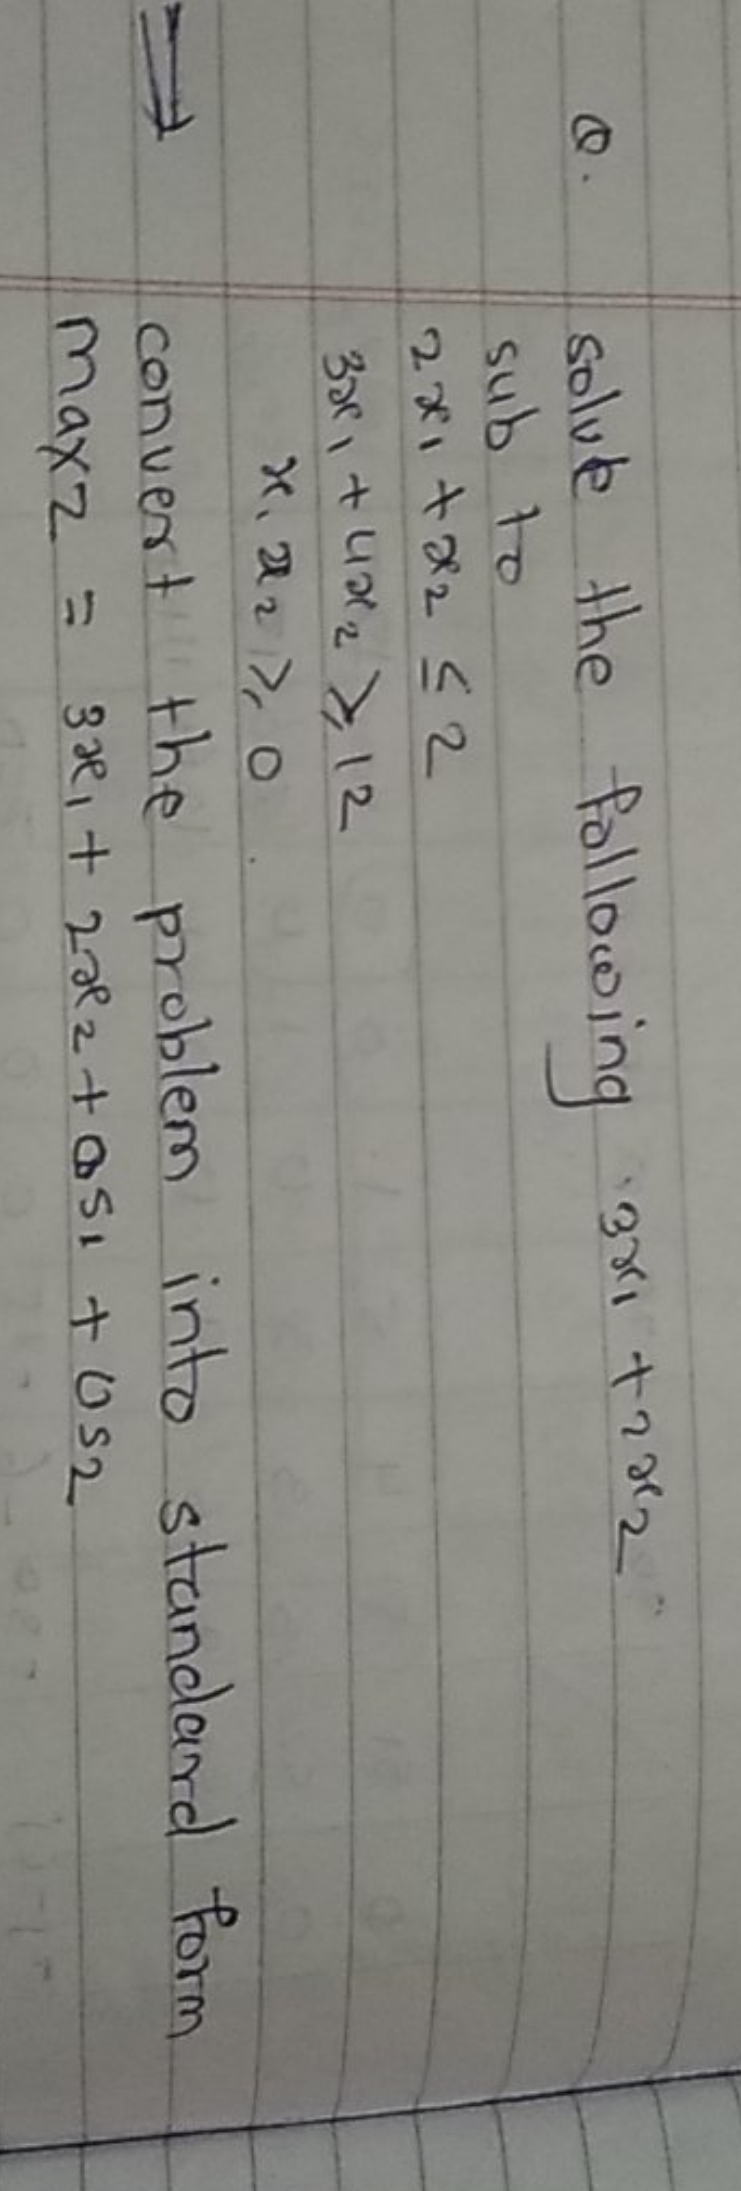 Q. solve the following 3x₁ + 2x₂
sub to
2x₁ + x₂ ≤ 2
3x₁ + 4x₂ ≥ 12
x₁ x₂ ≥ 0
→ convert the problem into standard form
max Z = 3x₁ + 2x₂ + 0s₁ + 0s₂